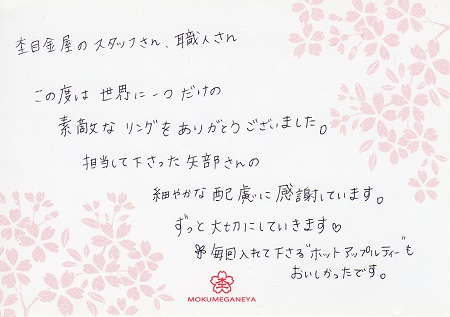 杢目金屋のスタッフさん、職人さん
この度は世界に一つだけの
素敵なリングをありがとうございました。
担当して下さった矢部さんの
細やかな配慮に感謝しています。
ずっと大切にしていきます♡
※毎回入れて下さる"ホットアップルティー"も
おいしかったです。
杢
MOKUMEGANEYA